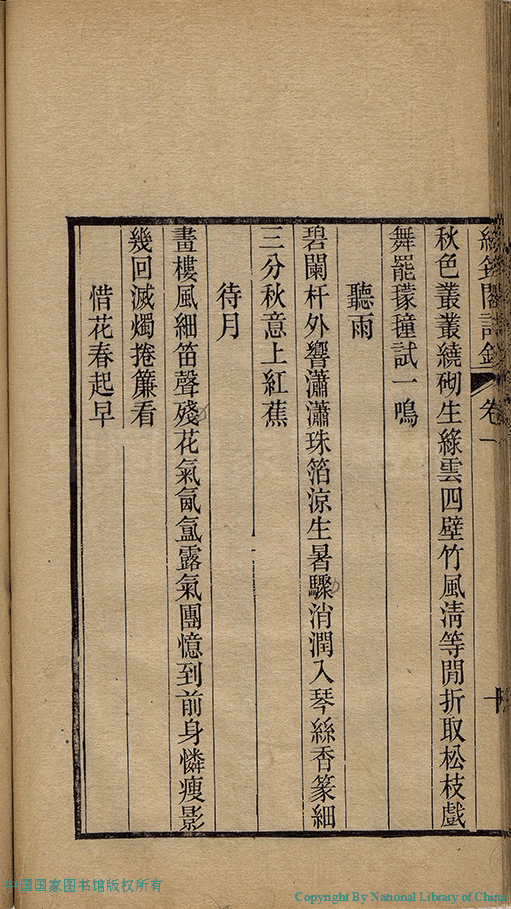 閣詩鈔 卷一 十
秋色叢叢繞砌生綠雲四壁竹風清等閒折取松枝戲
舞罷朦朣試一鳴
聽雨
碧闌杆外響瀟瀟珠箔涼生暑驟消潤入琴絲香篆細
三分秋意上紅蕉
待月
畫樓風細笛聲殘花氣氤氳露氣團憶到前身憐瘦影
幾回滅燭捲簾看
惜花春起早
中国国家图书馆版权所有
Copyright By National Library of China